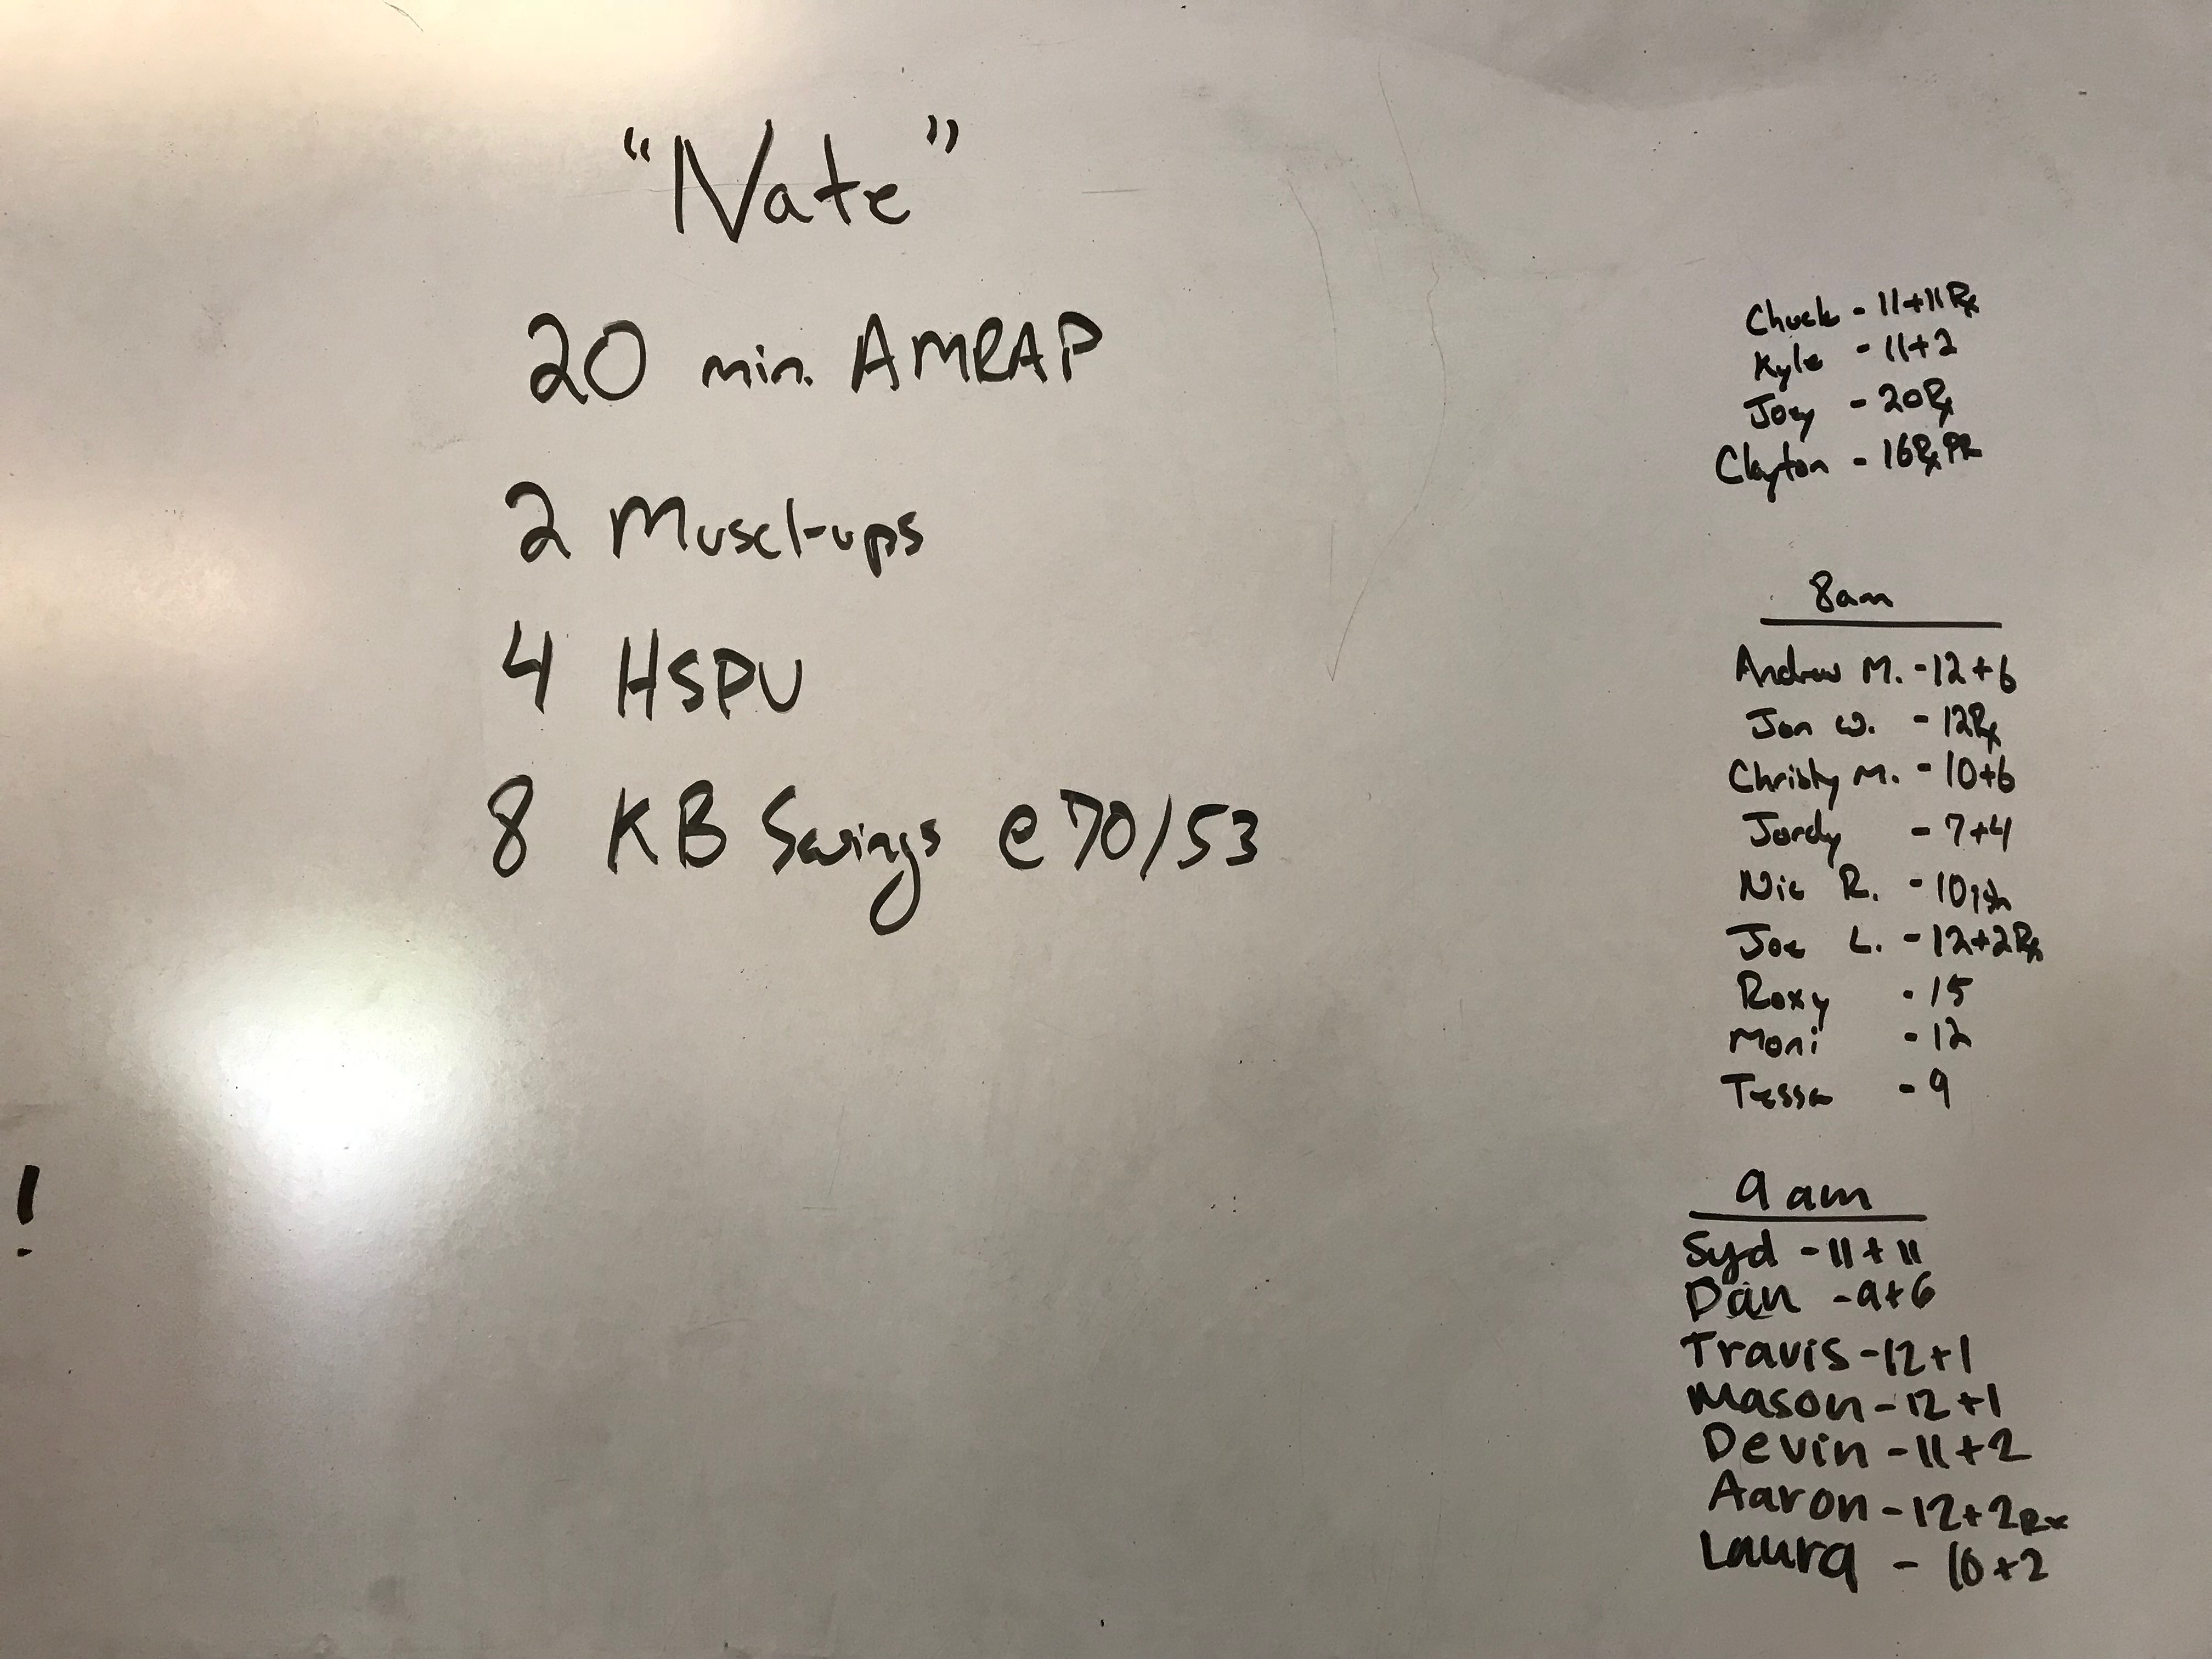 "Nate"
20 min. AMRAP
2 Muscl-ups
4 HSPU
8 KB Swings @ 70/53
!
Chuck - 11+11 Rx
Kyle - 11+2
Joey - 20 Rx
Clayton - 16 Rx PR
8am
Andrew M. - 12+6
Jon W. - 12 Rx
Christy M. - 10+6
Jordy - 7+4
Nic R. - 10ish
Joe L. - 12+2 Rx
Roxy - 15
Moni - 12
Tessa - 9
9am
Syd - 11+11
Dan - 9+6
Travis - 12+1
Mason - 12+1
Devin - 11+2
Aaron - 12+2 Rx
Laura - 10+2